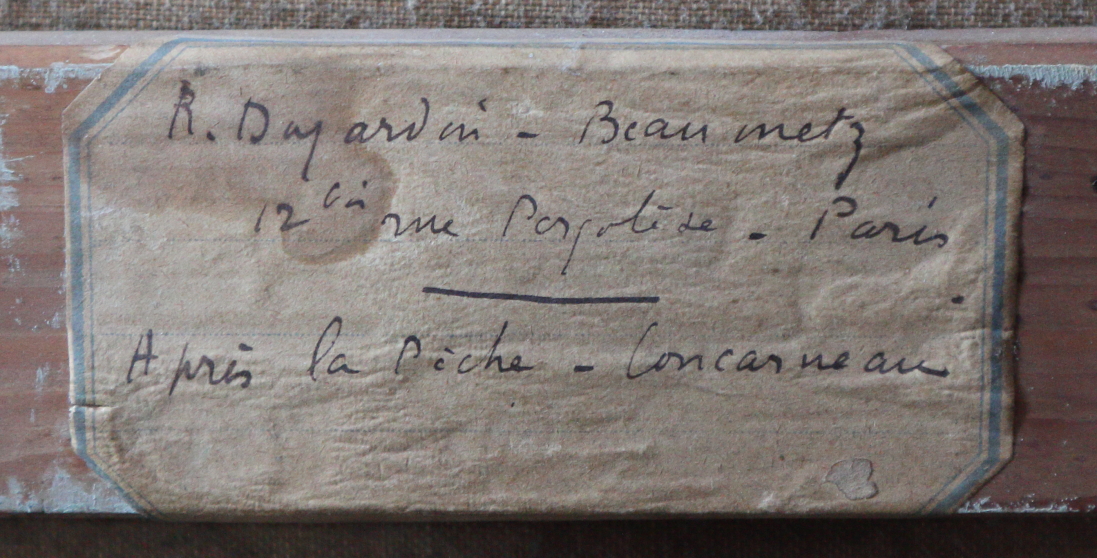 R. Dujardin - Beaumetz
12 bis rue Pergolèse - Paris
Après la Pêche - Concarneau